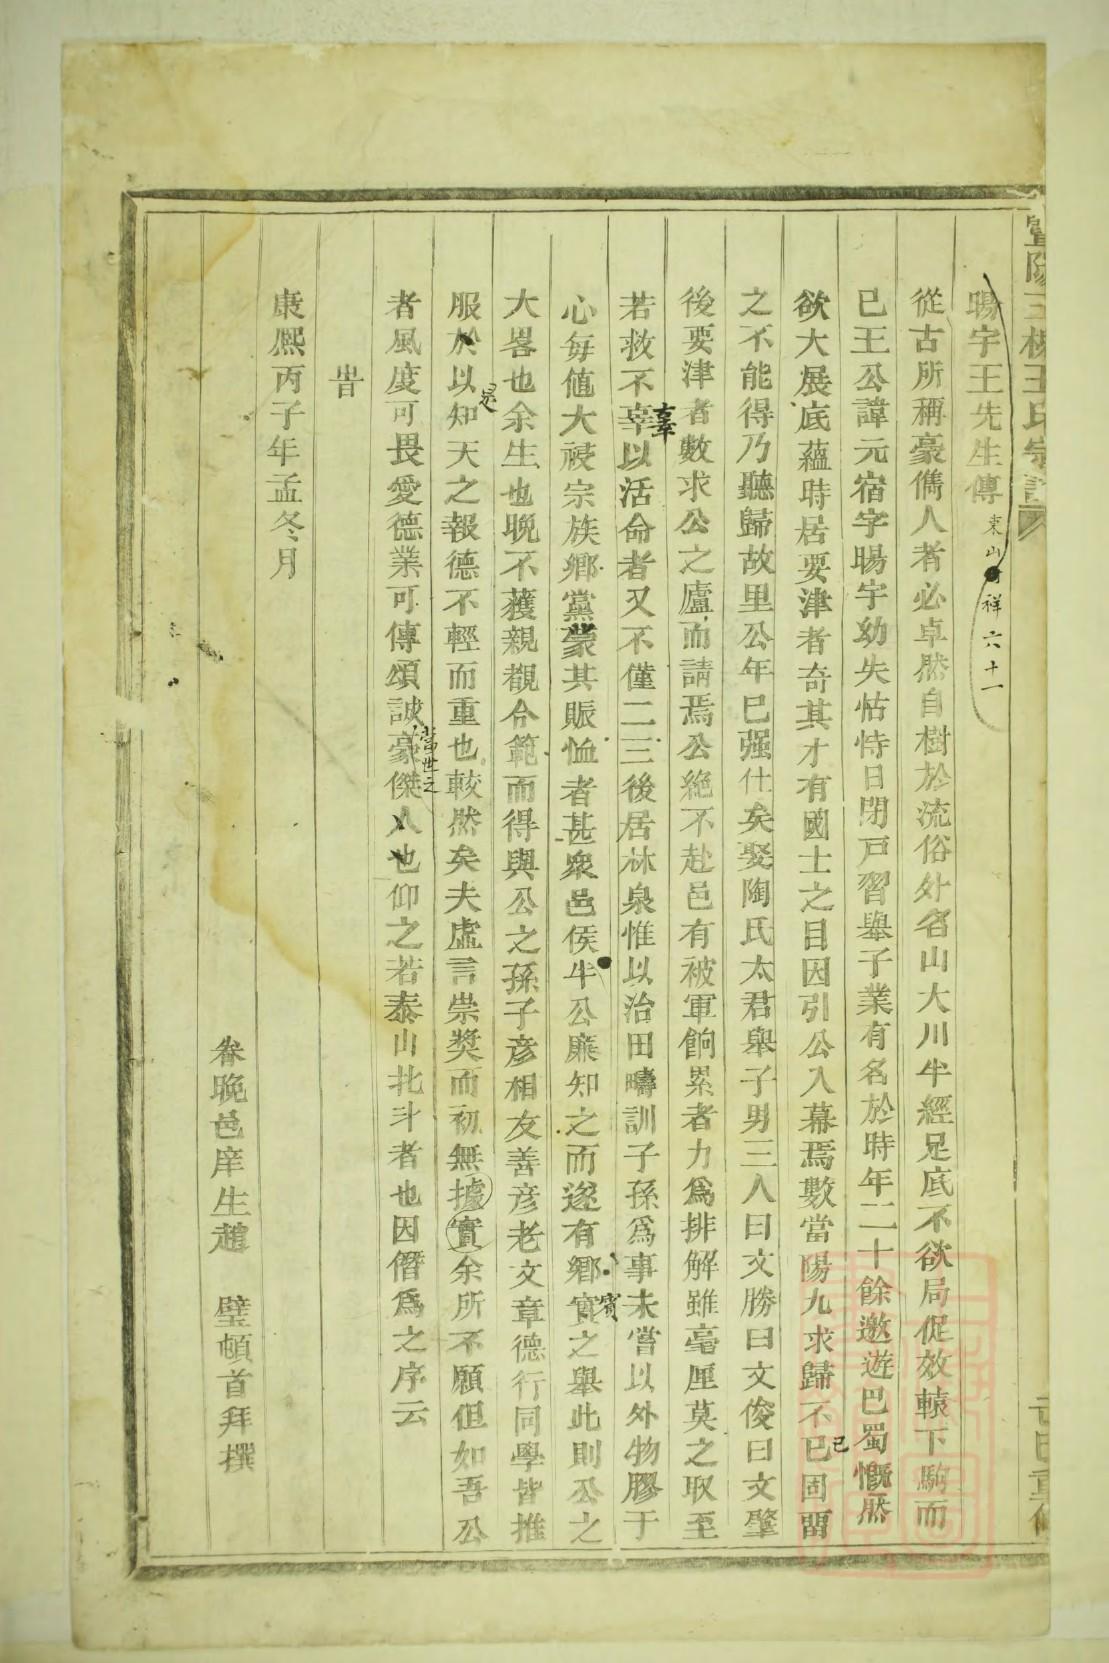 暨陽王氏宗譜
暘宇王先生傳 東山 祥六十一
從古所稱豪儁人者必卓然自樹於流俗外名山大川半經足底不欲局促效轅下駒而
已王公諱元宿字暘宇幼失怙恃日閉戸習舉子業有名於時年二十餘遨遊巴蜀慨然
欲大展底蘊時居要津者奇其才有國士之目因引公入幕焉數當陽九求歸不巳已固畱
之不能得乃聽歸故里公年巳强仕矣娶陶氏太君舉子男三人曰文勝曰文俊曰文肇
後要津者數求公之廬而請焉公絶不赴邑有被軍餉累者力爲排解雖毫厘莫之取至
若救不辜辜以活命者又不僅二三後居林泉惟以治田疇訓子孫爲事未嘗以外物膠于
心每値大祲宗族鄉黨蒙其賑恤者甚衆邑侯牛公廉知之而遂有鄉賓賓之舉此則公之
大畧也余生也晚不獲親覩令範而得與公之孫子彦相友善彦老文章德行同學皆推
服於以是知天之報德不輕而重也較然矣夫虛言崇奬而初無據實余所不願但如吾公
者風度可畏愛德業可傳頌誠當世之豪傑人也仰之若泰山北斗者也因僭爲之序云
旹
康熈丙子年孟冬月
眷晚邑庠生趙 璧頓首拜撰